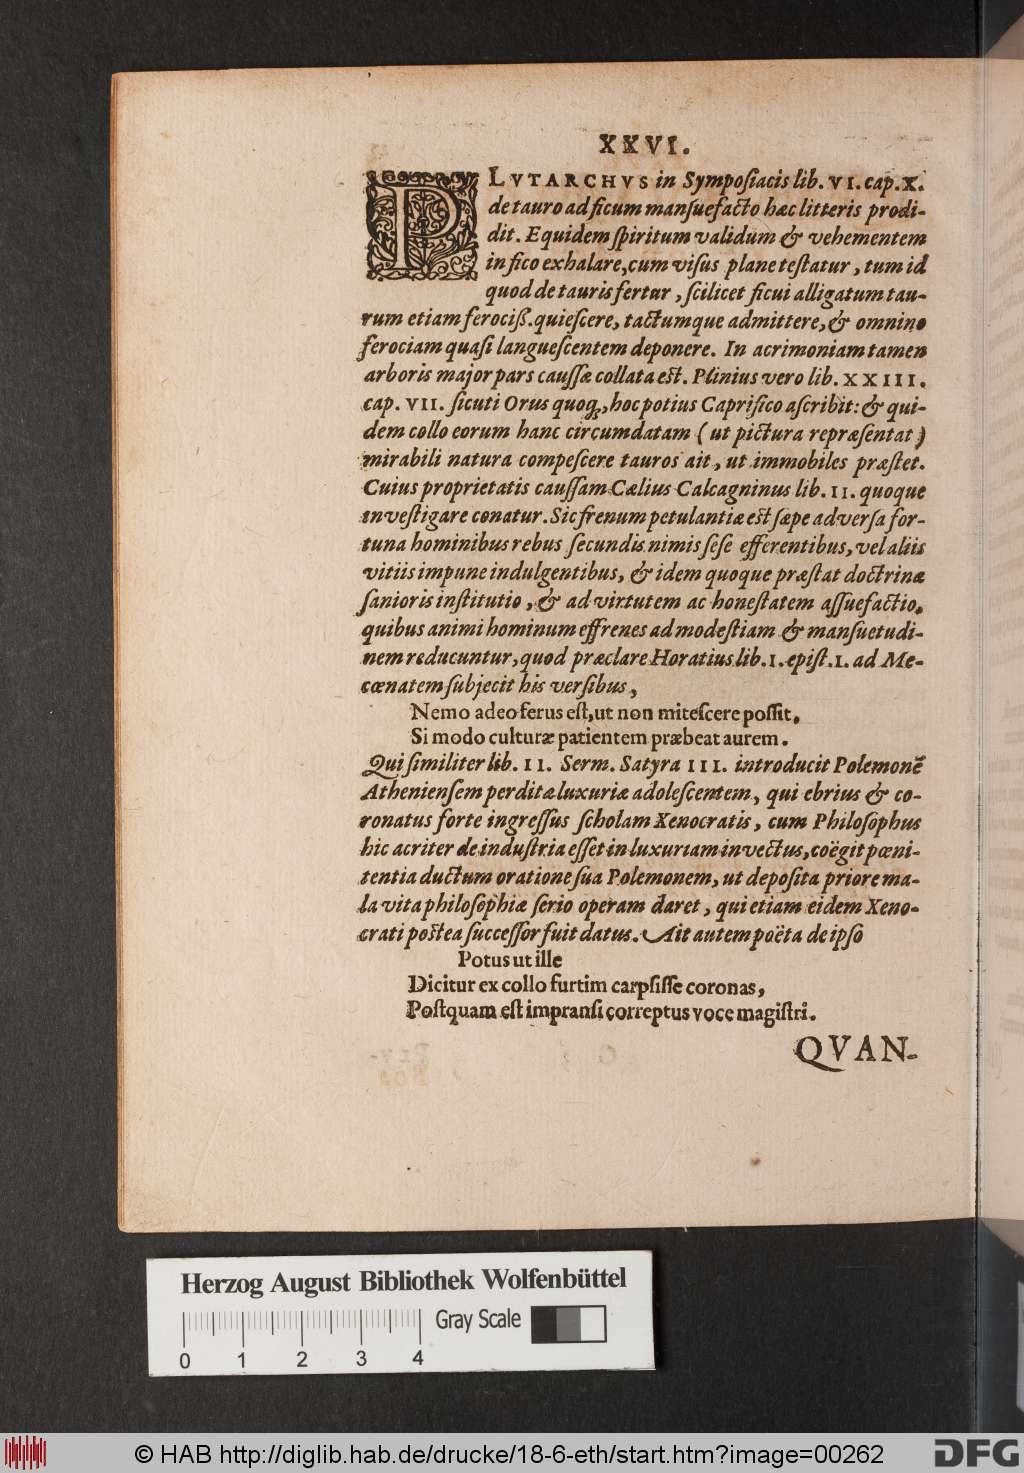 XXVI.
PLVTARCHVS in Sympoſiacis lib. VI. cap. X.
de tauro ad ficum manſuefacto hæc litteris prodi-
dit. Equidem ſpiritum validum & vehementem
in fico exhalare, cum viſus plane teſtatur, tum id
quod de tauris fertur, ſcilicet ficui alligatum tau-
rum etiam ferociß. quieſcere, tactumque admittere, & omnino
ferociam quaſi langueſcentem deponere. In acrimoniam tamen
arboris major pars cauſſæ collata eſt. Plinius vero lib. XXIII.
cap. VII. ſicuti Orus quoq;, hoc potius Caprifico aſcribit: & qui-
dem collo eorum hanc circumdatam (ut pictura repræſentat)
mirabili natura compeſcere tauros ait, ut immobiles præſtet.
Cuius proprietatis cauſſam Cælius Calcagninus lib. II. quoque
inveſtigare conatur. Sic frenum petulantiæ eſt ſæpe adverſa for-
tuna hominibus rebus ſecundis nimis ſeſe efferentibus, vel aliis
vitiis impune indulgentibus, & idem quoque præſtat doctrinæ
ſanioris inſtitutio, & ad virtutem ac honeſtatem aſſuefactio,
quibus animi hominum effrenes ad modeſtiam & manſuetudi-
nem reducuntur, quod præclare Horatius lib. I. epiſt. I. ad Me-
cœnatem ſubjecit his verſibus,
Nemo adeo ferus eſt, ut non miteſcere poſſit,
Si modo culturæ patientem præbeat aurem.
Qui ſimiliter lib. II. Serm. Satyra III. introducit Polemonē
Athenienſem perditæ luxuriæ adoleſcentem, qui ebrius & co-
ronatus forte ingreſſus ſcholam Xenocratis, cum Philoſophus
hic acriter de induſtria eſſet in luxuriam invectus, coëgit pœni-
tentia ductum oratione ſua Polemonem, ut depoſita priore ma-
la vita philoſophiæ ſerio operam daret, qui etiam eidem Xeno-
crati poſtea ſucceſſor fuit datus. Ait autem poëta de ipſo
Potus ut ille
Dicitur ex collo furtim carpſiſſe coronas,
Poſtquam eſt impranſi correptus voce magiſtri.
QVAN-
Herzog August Bibliothek Wolfenbüttel
Gray Scale
0 1 2 3 4
© HAB http://diglib.hab.de/drucke/18-6-eth/start.htm?image=00262
DFG